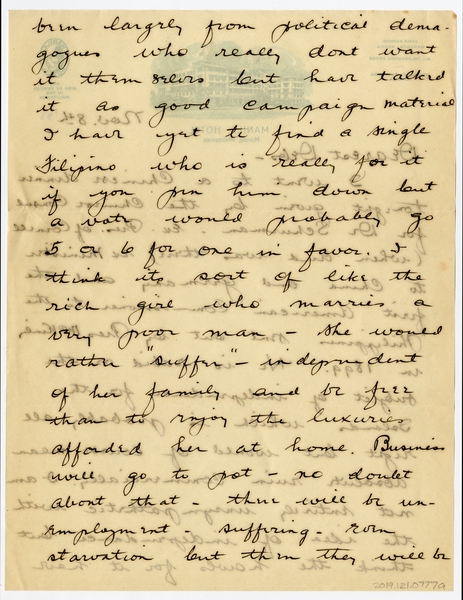 been largely from political dema-
gogues who really dont want
it themselves but have talked
it as good campaign material
I have yet to find a single
Filipino who is really for it
if you pin him down but
a vote would probably go
5 or 6 for one in favor. I
think its sort of like the
rich girl who marries a
very poor man - she would
rather "suffer" - independent
of her family and be free
than to enjoy the luxuries
afforded her at home. Business
will go to pot - no doubt
about that - there will be un-
employment - suffering - even
starvation but then they will be
2019.121.0777a